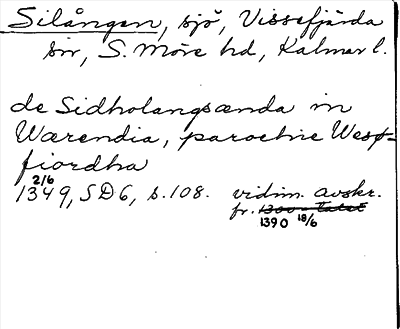 Silången, sjö, Vissefjärda
sn, S. Möre hd, Kalmar l.
de Sidholangsænda in
Wærendia, parochie Wesø-
fiordha
2/6
1349, SD6, s. 108. vidim. avskr.
fr. 1300-talet
1390 18/6